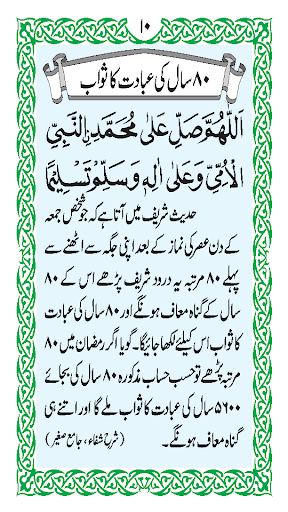 ۱۰
۸۰ سال کی عبادت کا ثواب
اَللّٰهُمَّ صَلِّ عَلٰى مُحَمَّدِ ۨالنَّبِيِّ
الْاُمِّيِّ وَعَلٰى اٰلِهٖ وَسَلِّمْ تَسْلِيْمًا
حدیث شریف میں آتا ہے کہ جو شخص جمعہ
کے دن عصر کی نماز کے بعد اپنی جگہ سے اٹھنے سے
پہلے ۸۰ مرتبہ یہ درود شریف پڑھے اس کے ۸۰
سال کے گناہ معاف ہونگے اور ۸۰ سال کی عبادت
کا ثواب اس کیلئے لکھا جائیگا۔ گویا اگر رمضان میں ۸۰
مرتبہ پڑھے تو حسب حساب مذکورہ ۸۰ سال کی بجائے
۵۶۰۰ سال کی عبادت کا ثواب ملے گا اور اتنے ہی
گناہ معاف ہونگے۔ (شرح شفاء، جامع صغیر)